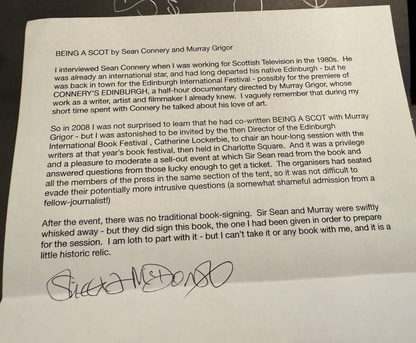 BEING A SCOT by Sean Connery and Murray Grigor
I interviewed Sean Connery when I was working for Scottish Television in the 1980s. He
was already an international star, and had long departed his native Edinburgh - but he
was back in town for the Edinburgh International Festival - possibly for the premiere of
CONNERY'S EDINBURGH, a half-hour documentary directed by Murray Grigor, whose
work as a writer, artist and filmmaker I already knew. I vaguely remember that during my
short time spent with Connery he talked about his love of art.
So in 2008 I was not surprised to learn that he had co-written BEING A SCOT with Murray
Grigor - but I was astonished to be invited by the then Director of the Edinburgh
International Book Festival , Catherine Lockerbie, to chair an hour-long session with the
writers at that year's book festival, then held in Charlotte Square. And it was a privilege
and a pleasure to moderate a sell-out event at which Sir Sean read from the book and
answered questions from those lucky enough to get a ticket. The organisers had seated
all the members of the press in the same section of the tent, so it was not difficult to
evade their potentially more intrusive questions (a somewhat shameful admission from a
fellow-journalist!)
After the event, there was no traditional book-signing. Sir Sean and Murray were swiftly
whisked away - but they did sign this book, the one I had been given in order to prepare
for the session. I am loth to part with it - but I can't take it or any book with me, and it is a
little historic relic.